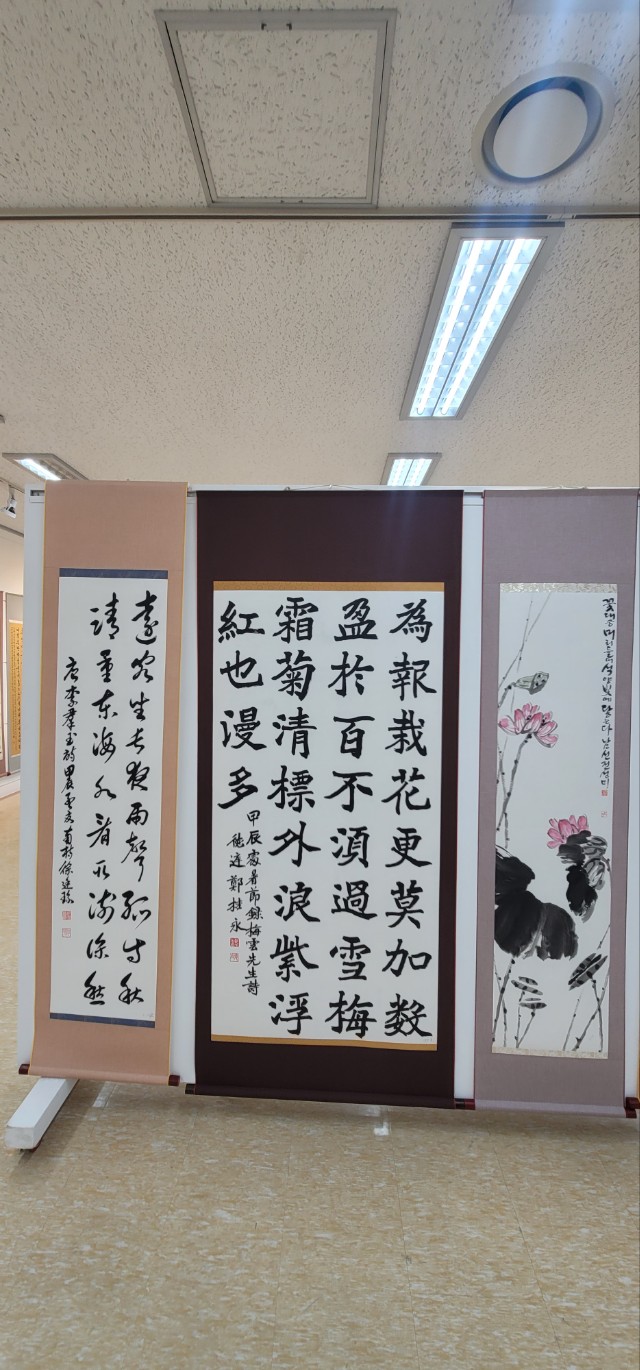 遠客坐長夜雨聲孤寺秋
請量東海水看取淺深愁
唐李群玉詩甲辰
為報栽花更莫加数
盈於百不湏過雪梅
霜菊清標外浪紫浮
紅也漫多
甲辰處暑節錄梅雲先生詩
鄭桂永
꽃대궁 석양빛에